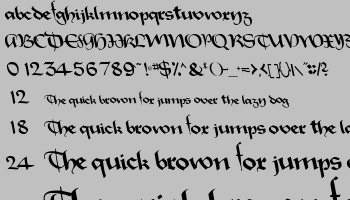 abcdefghijklmnopqrstuvwxyz
ABCDEFGHIJKLMNOPQRSTUVWXYZ
0123456789
12 The quick brown for jumps over the lazy dog
18 The quick brown for jumps over the la
24 The quick brown for jumps